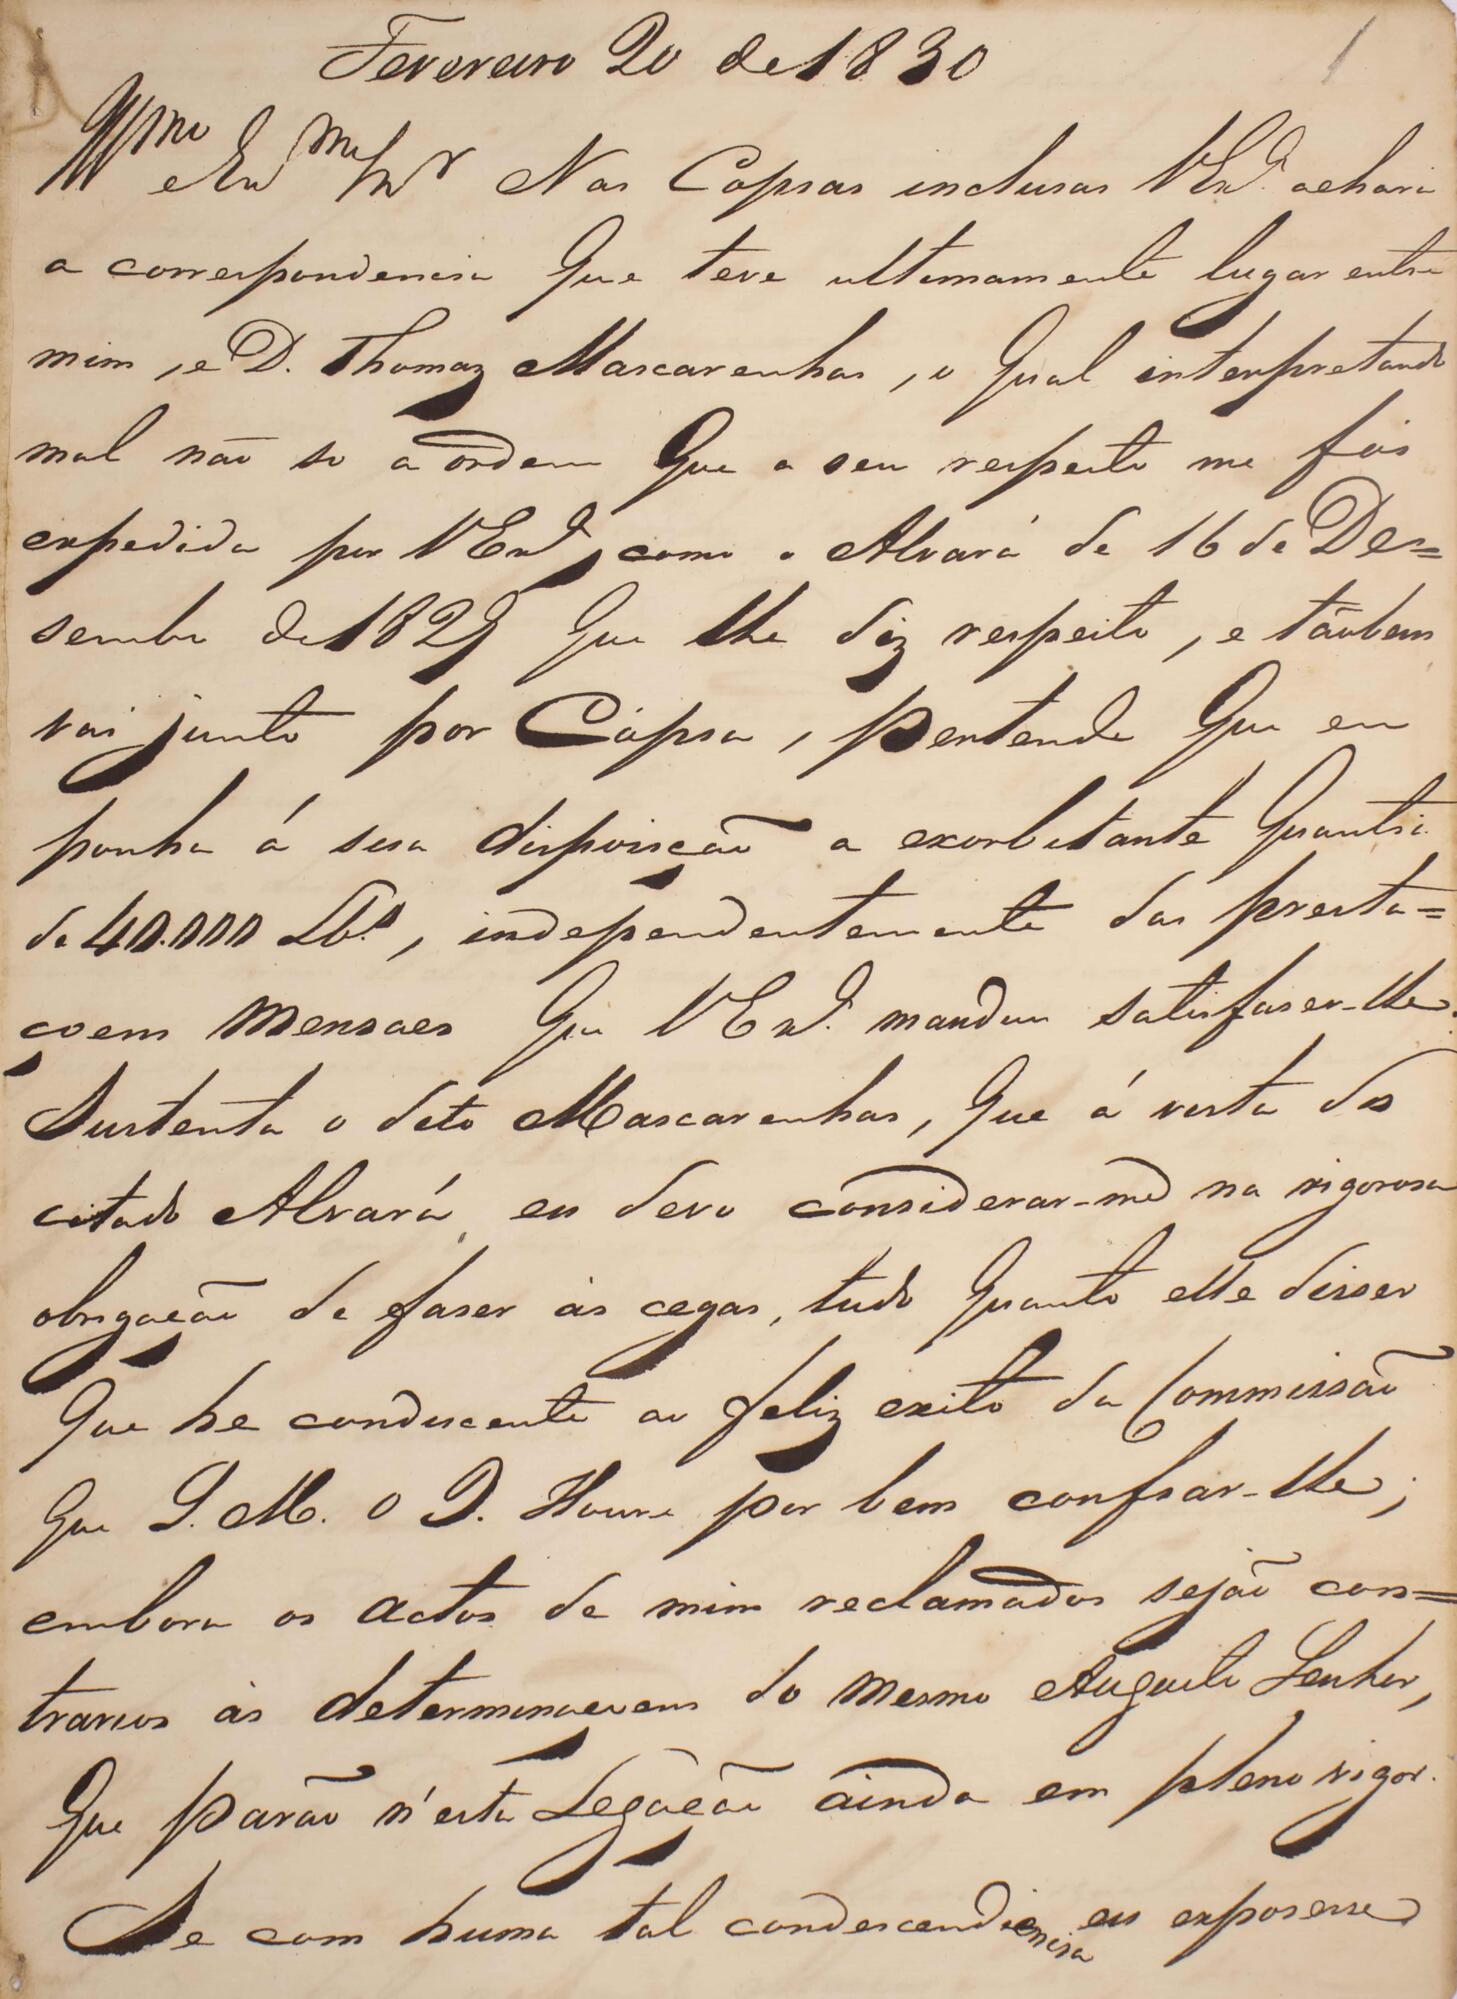 Fevereiro 20 de 1830
1
Illmo e Exmo Snr Nas Copias inclusas V Exa. achará
a correspondencia que teve ultimamente lugar entre
mim, e D. Thomaz Mascarenhas, o qual interpretando
mal não so a ordem que a seu respeito me foi
expedida por V Exa, como o Alvará de 16 de De=
sembro de 1829 que lhe diz respeito, e tãobem
vai junto por Cópia, pertende que eu
ponha á sua disposição a exorbitante quantia
de 40.000 Lbs, independentemente das presta=
çoens mensaes que V Exa. mandou satisfaser-lhe.
Sustenta o dito Mascarenhas, que á vista do
citado Alvará, eu devo considerar-me na rigorosa
obrigação de faser ás cegas, tudo quanto elle disser
que he conducente ao feliz exito da Commissão
que S. M. O D. Houve por bem confiar-lhe;
embora os actos de mim reclamados sejão con=
trarios ás determinaçoens do mesmo Augusto Senhor,
que parão n'esta Legação ainda em pleno vigor.
Se com huma tal condescendiencia eu exposesse